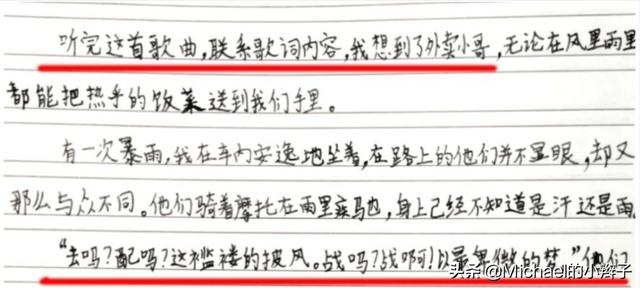 听完这首歌曲,联系歌词内容,我想到了外卖小哥,无论在风里雨里
都能把热乎的饭菜送到我们手里。
有一次暴雨,我在车内安逸地坐着,在路上的他们并不显眼,却又
那么与众不同。他们骑着摩托在雨里奔驰,身上已经不知道是汗还是雨
“去吗?配吗?这褴褛的披风。战吗?战啊!以最卑微的梦”他们
头条 @Michael的小辫子